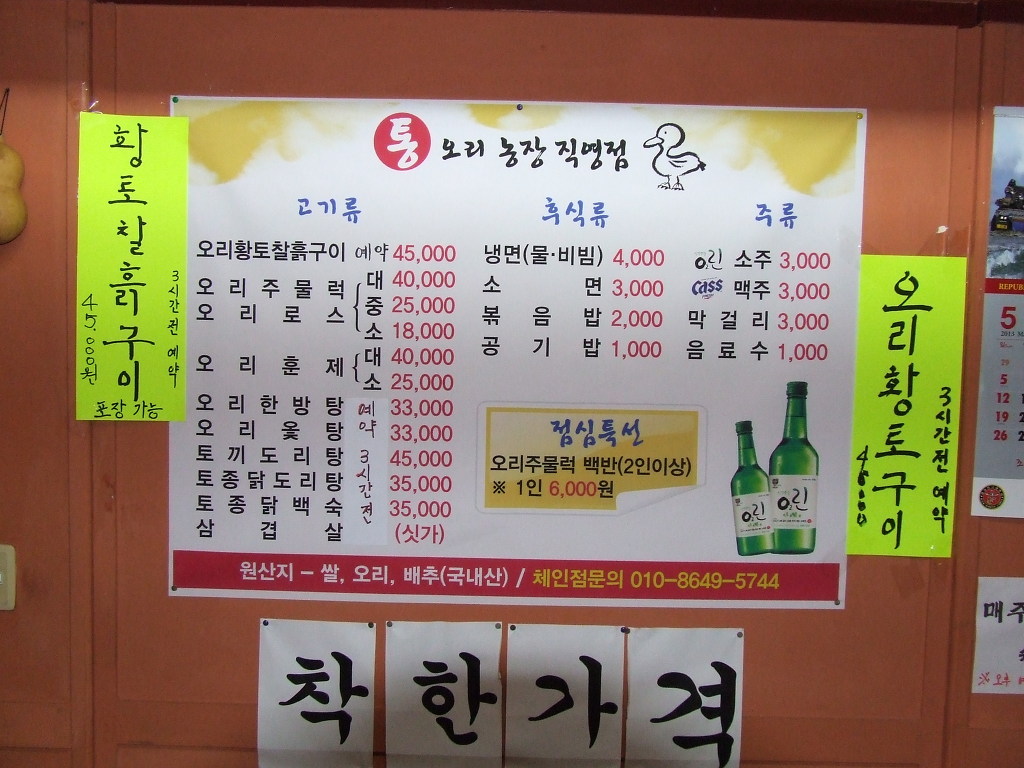 황토찰흙구이
3시간전 예약
45,000원
포장 가능
통 오리 농장 직영점
고기류
오리황토찰흙구이 예약 45,000
오리주물럭 대 40,000
오리로스 중 25,000
소 18,000
오리훈제 대 40,000
소 25,000
오리한방탕 33,000
오리옻탕 33,000
토끼도리탕 45,000
토종닭도리탕 35,000
토종닭백숙 35,000
삼겹살 (싯가)
예약 3시간전
후식류
냉면(물·비빔) 4,000
소면 3,000
볶음밥 2,000
공기밥 1,000
주류
O2린 소주 3,000
Cass 맥주 3,000
막걸리 3,000
음료수 1,000
점심특선
오리주물럭 백반(2인이상)
※ 1인 6,000원
O2린
O2린
원산지 – 쌀, 오리, 배추(국내산) / 체인점문의 010-8649-5744
오리황토구이
3시간전 예약
착한가격
REPUB
5
2013
5
12
19
26
매주